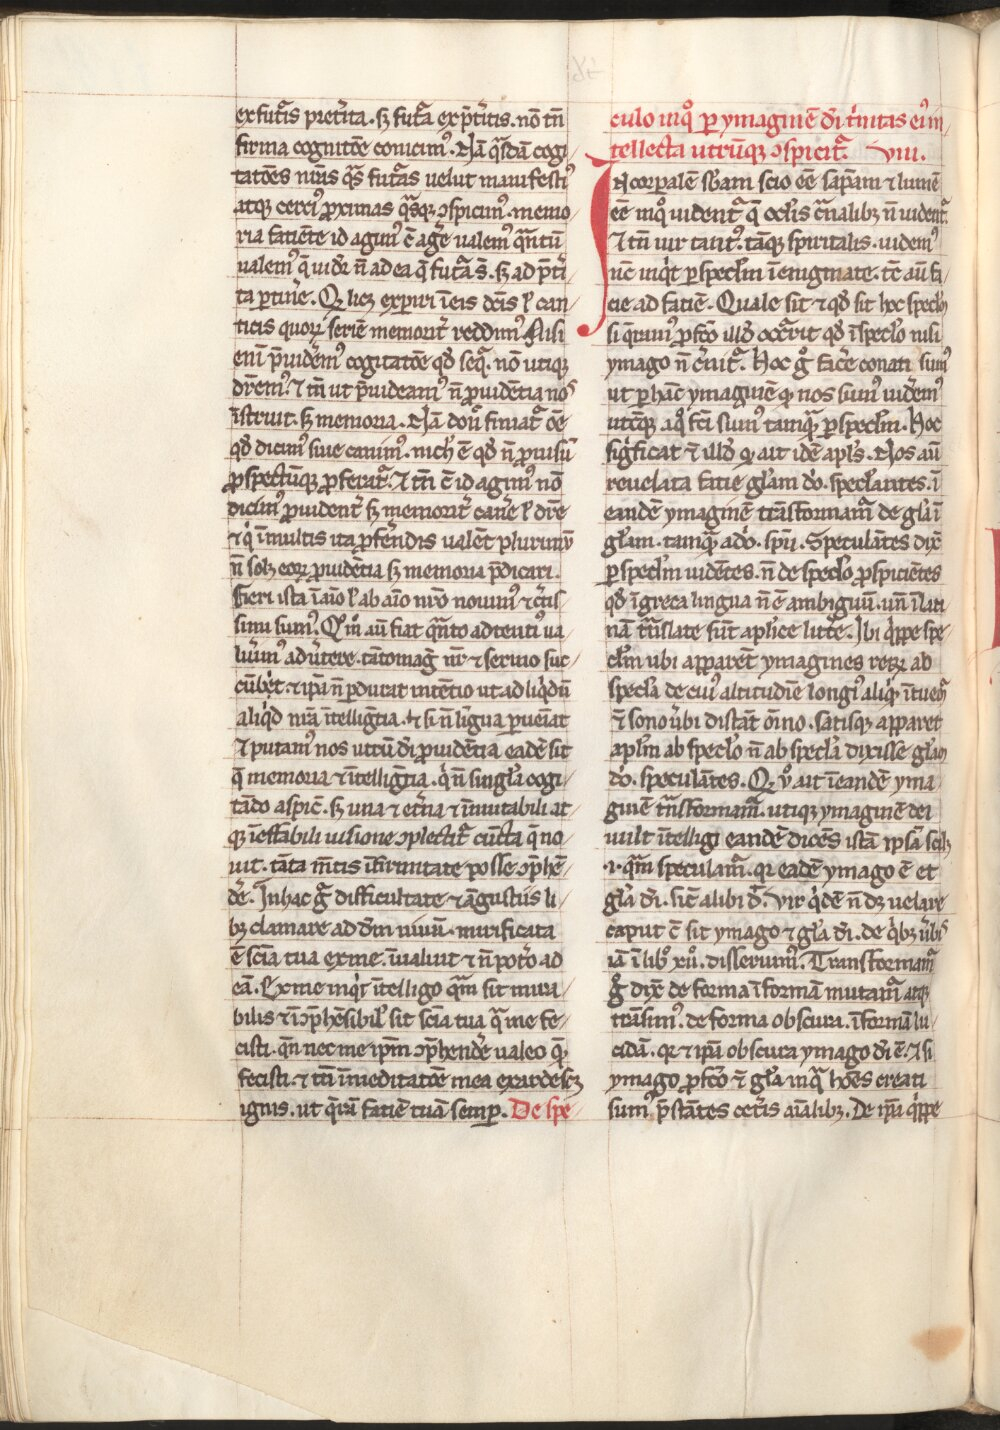 exfut᷑is pret᷑ita. sꝫ fut᷑a exp̄t᷑itis. nō tn̄
firma cognitōe conicim᷒. Nā q̄sdā cogi
tatōes n̄r̄as q̄s fut᷑as uelut manifesti᷒
atqꝫ certi᷒ ꝓximas q̄sqꝫ ꝯspicim᷒. memo
ria fatiēte id agim᷒ cū̄ ag̕e ualem᷒ q̄ntū
ualem᷒ q̄ uid̕r n̄ ad ea q̄ fut᷑a s̄. sꝫ ad p̄t̕i
ta ꝑtin̕e. Qꝫ licꝫ expiri ī eis dc̄is ł can
ticis quoꝝ seriē memorit̕ reddim᷒. Nisi
eni p̄uid̕em᷒ cogitatōe qd̕ seq̄. nō utiqꝫ
dr̄em᷒. ⁊ tn̄ ut p̄uideam᷒ n̄ ꝓuidētia nos
īstruit. sꝫ memoria. Nā don̄ finiat᷑ oē
qd̕ dicim᷒ siue canim᷒. nich̕ ē qd̕ n̄ ꝓuisū
ꝓspectūqꝫ ꝓferat᷑. ⁊ tn̄ cū̄ id agim᷒ nō
dicim᷒ ꝓuident̕ sꝫ memorit̕ can̕e ł dr̄e
⁊ q̇ ī multis ita ꝓfer̄dis ualēt plurimū
n̄ solꝫ eoꝝ ꝓuidētia sꝫ memoria p̄dicari.
Fieri ista ī aīo ł ab aīo nr̄o nouim᷒ ⁊ c̄tis
simi sum᷒. Qm̊ aū fiat q̄nto adtenti᷒ ua
lu̕im᷒ adu̕tere. tātomaḡ nr̄ ⁊ sermo suc
cūb̕et. ⁊ ip̄a n̄ ꝑdurat intētio ut ad liq̇dū
aliq̇d nr̄a ītelligētia. ⁊ si n̄ līgua ꝑueniat
⁊ putam᷒ nos utrū di̅ ꝓuidētia eadē sit
q̄ memoria ⁊ ītelligētia. q̇ n̄ singl̄a cogi
tādo aspic̄. sꝫ una ⁊ et̕na ⁊ īmutabili at
qꝫ ī effabili uisione ꝯplectit᷑ cūcta q̄ no
uit. tāta mētis īfirmitate posse ꝯp̄hē
d̕e. In hac g᷑ difficultate ⁊ āgustiis li
bꝫ clamare ad dm̄ uiuū. mirificata
ē scīa tua ex me. īualuit ⁊ n̄ pot̕o ad
eā. Ex me inq̇t ītelligo q̄m sit mira
bilis ⁊ ī ꝯp̄hēsibil̕ sit scīa tua q̄ me fe
cisti. q̄n nec me ip̄m ꝯp̄hend̕e ualeo q̄
fecisti. ⁊ tn̄ ī meditatōe mea exardescꝫ
ignis. ut q̄rā fatiē tuā semꝑ. De spe
culo in q̊ ꝑ ymaginē di̅ t̕nitas ei᷒ in
tellecta utrūqꝫ ꝯspicit᷑. viii.
Incorꝑalē sb̄am scio eē sapiam ⁊ lumē
eē in q̊ uident᷑ q̄ oclis c̄nalibꝫ n̄ uident᷑
⁊ tn̄ uir tant᷒. tāqꝫ spiritalis. uidem᷒
nūc inq̇t ꝑ speclm̄ ī enigmate. tūc aū fa
cie ad fatiē. Quale sit ⁊ qd̕ sit hoc speclm̄
si q̄ram᷒ ꝓfc̄o illd̕ occ᷑rit qd̕ ī specl̄o nisi
ymago n̄ c̕nit᷑. Hoc g᷑ fac̕e conati sum᷒
ut ꝑ hāc ymaginē q̄ nos sum᷒ uid̕em᷒
utcūqꝫ a q̊ fc̄i sum᷒ tamq̄ ꝑ speclm̄. Hoc
sig̕ficat ⁊ illd̕ q̄ ait idē apl̄s. Nos aū
reuelata fatie gl̄am do̅. specl̄antes. ī
eandē ymaginē trāsformam᷑ de gl̄a ī
gl̄am. tamq̄ a do̅. spū. Speculātes dix̄
ꝑ speclm̄ uidētes. n̄ de specl̄o ꝓspiciētes
qd̕ ī greca lingua n̄ ē ambiguū. un̄ ī lati
nā trāslate sūt aplīce litt̕e. Ibi q̇ppe spe
clm̄ ubi apparēt ymagines reꝝ ab
specl̄a de cui᷒ altitudīe longi᷒ aliq̇ ītuem᷑
⁊ sono u̕bi distāt oīno. satisqꝫ apparet
aplm̄ ab specl̄o n̄ ab specl̄a dixisse gl̄am
do̅. speculātes. Qꝫ ů ait ī eandē yma
ginē trāsformam᷑. utiqꝫ ymaginē dei
uult ītelligi eandē dicēs istā ip̄sā scilꝫ
.i. q̄m speculam᷑. qꝛ eadē ymago ē et
gl̄a di̅. sic̄ alibi d᷑. Vir q̇dē n̄ dꝫ uelare
caput cū̄ sit ymago ⁊ gl̄a di̅. de q̇bꝫ u̕bis
iā ī libro xii̊. disseruim᷒. Transformam᷑
g᷑ dix̄ de forma ī formā mutam᷑ atqꝫ
trāsim᷒. de forma obscura. ī formā lu
cidā. qꝛ ⁊ ip̄a obscura ymago di̅ ē. ⁊ si
ymago ꝓfc̄o ⁊ gl̄a in q̄ hoīes creati
sum᷒ p̄stātes cet̕is aīalibꝫ. De ip̄a q̇ppe